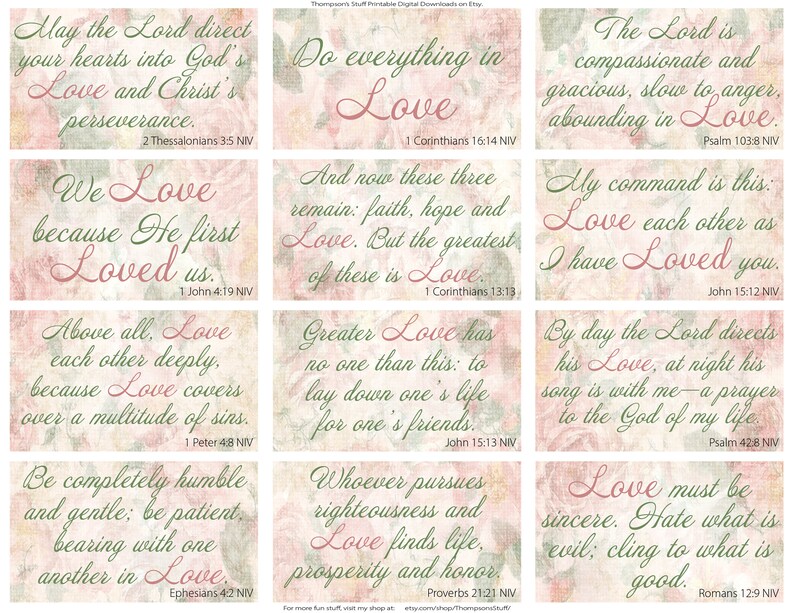 Thompson's Stuff Printable Digital Downloads on Etsy.
May the Lord direct
your hearts into God's
Love and Christ's
perseverance.
2 Thessalonians 3:5 NIV
Do everything in
Love
1 Corinthians 16:14 NIV
The Lord is
compassionate and
gracious, slow to anger,
abounding in Love.
Psalm 103:8 NIV
We Love
because He first
Loved us.
1 John 4:19 NIV
And now these three
remain: faith, hope and
Love. But the greatest
of these is Love.
1 Corinthians 13:13
My command is this:
Love each other as
I have Loved you.
John 15:12 NIV
Above all, Love
each other deeply,
because Love covers
over a multitude of sins.
1 Peter 4:8 NIV
Greater Love has
no one than this: to
lay down one's life
for one's friends.
John 15:13 NIV
By day the Lord directs
his Love, at night his
song is with me—a prayer
to the God of my life.
Psalm 42:8 NIV
Be completely humble
and gentle; be patient,
bearing with one
another in Love.
Ephesians 4:2 NIV
Whoever pursues
righteousness and
Love finds life,
prosperity and honor.
Proverbs 21:21 NIV
Love must be
sincere. Hate what is
evil; cling to what is
good.
Romans 12:9 NIV
For more fun stuff, visit my shop at: etsy.com/shop/ThompsonsStuff/